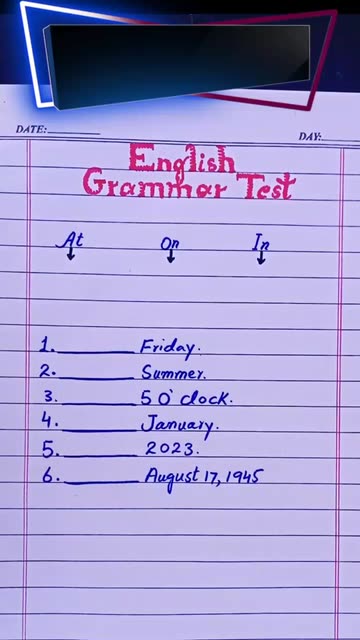 DATE:
DAY:
English
Grammar Test
At On In
1. Friday.
2. Summer.
3. 5 O'clock.
4. January.
5. 2023.
6. August 17, 1945